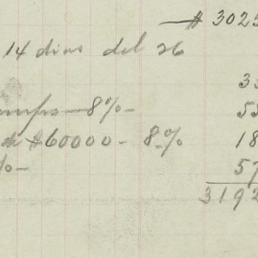 $ 3025
14 dias del 26
3
8% - 5
$60000 - 8% 18
% - 57
3192